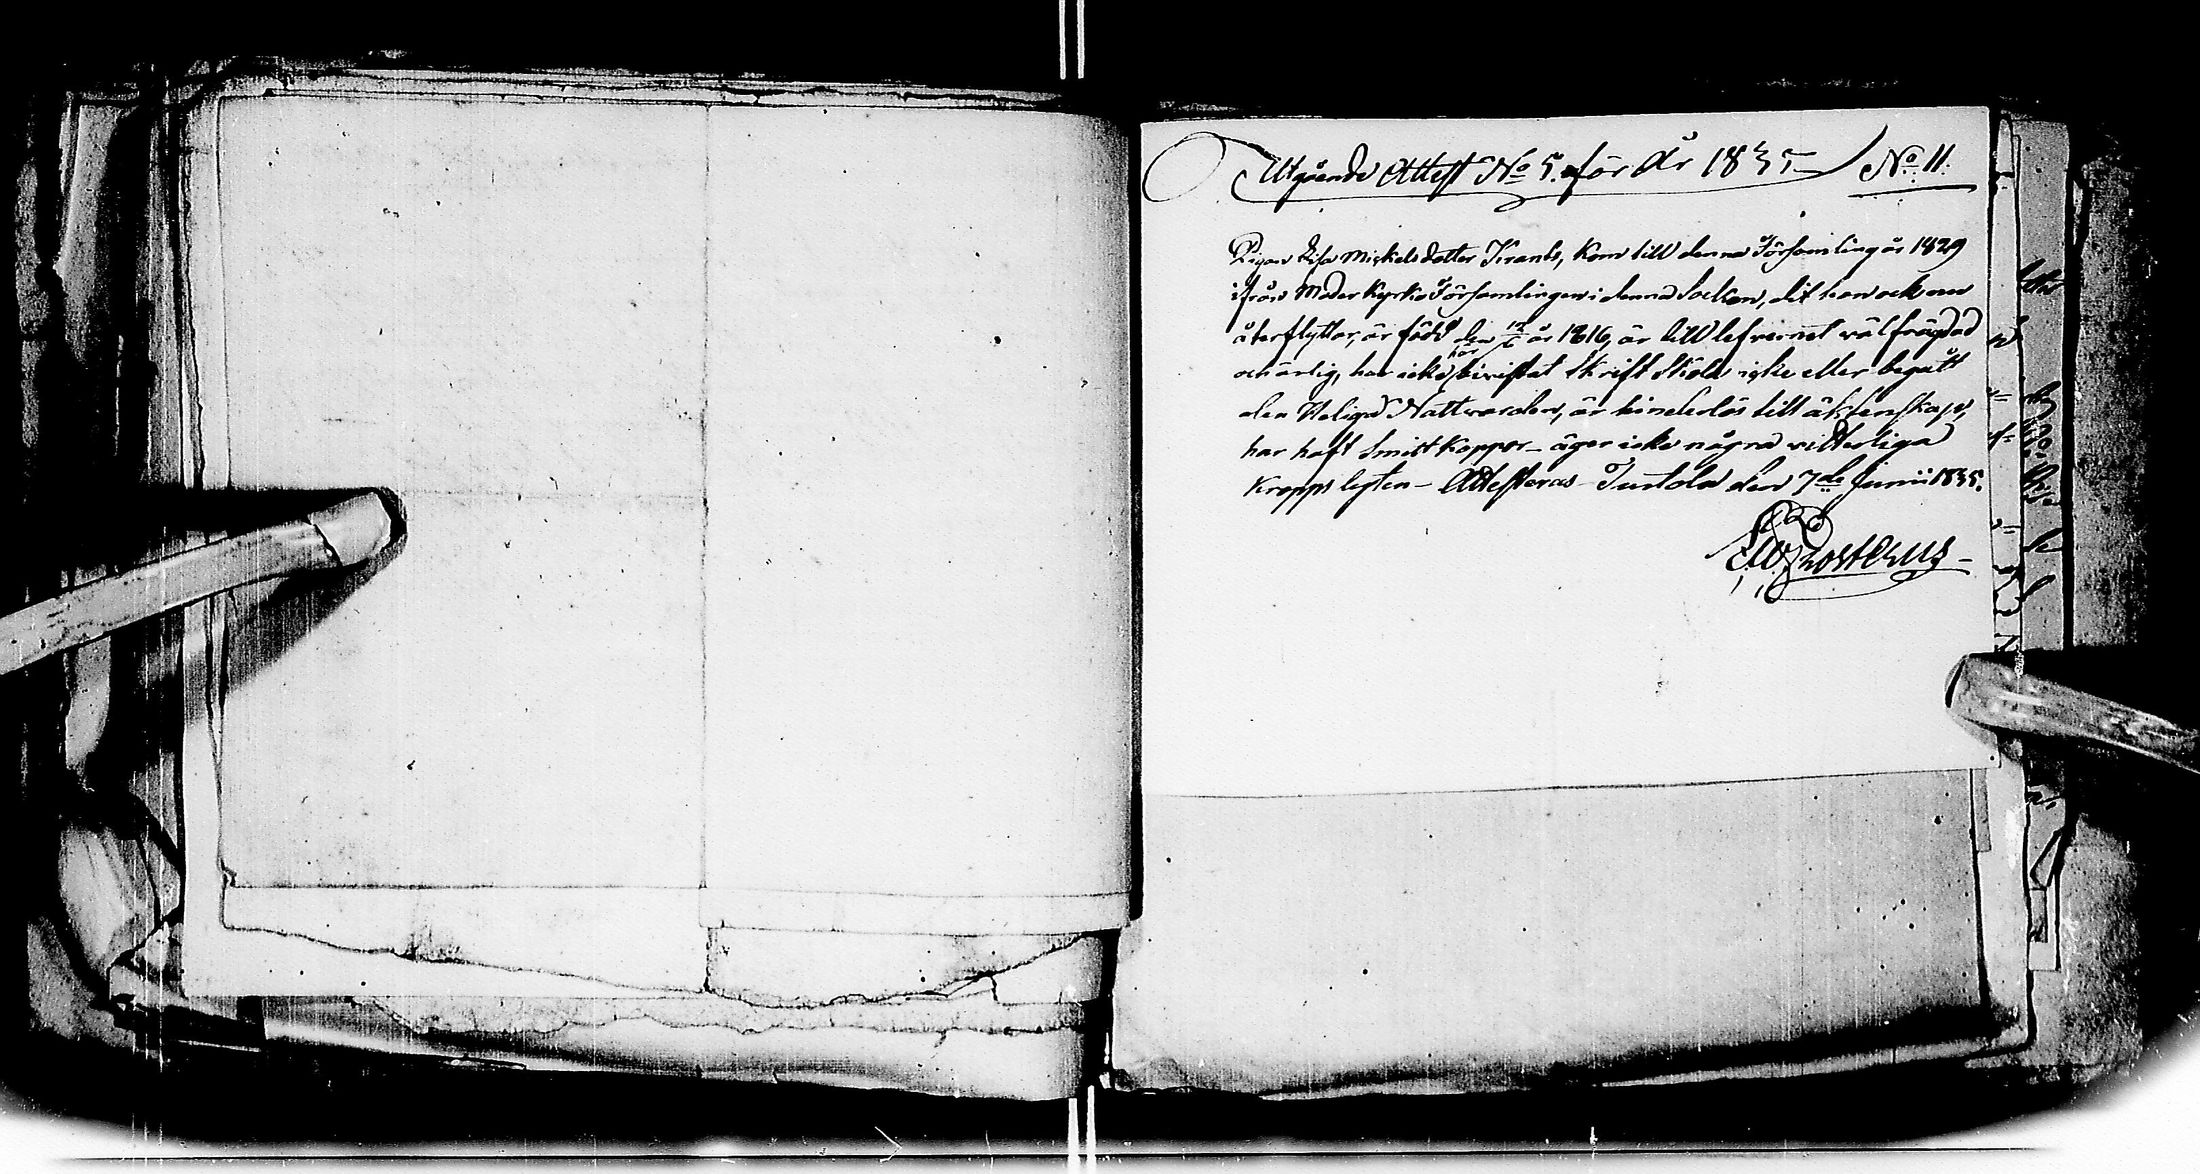 Utgående Attest No 5. för År 1835 No 11.
Pigan Lisa Mickelsdotter Krants, Kom till denna Församling år 1829
ifrån Moder Kyrko Församlingen i denna Socken, dit hon ock nu
återflyttar, är född den 12/6 år 1816, är till lefvernet välfrägdad
och ärlig, har icke här bivistat Skrift Skola icke eller begått
den Heliga Nattvarden, är hinderlös till äktenskap,
har haft Smittkoppor – äger icke några vitterliga
Kropps lyten – Attesteras Tuulola den 7de Junii 1835.